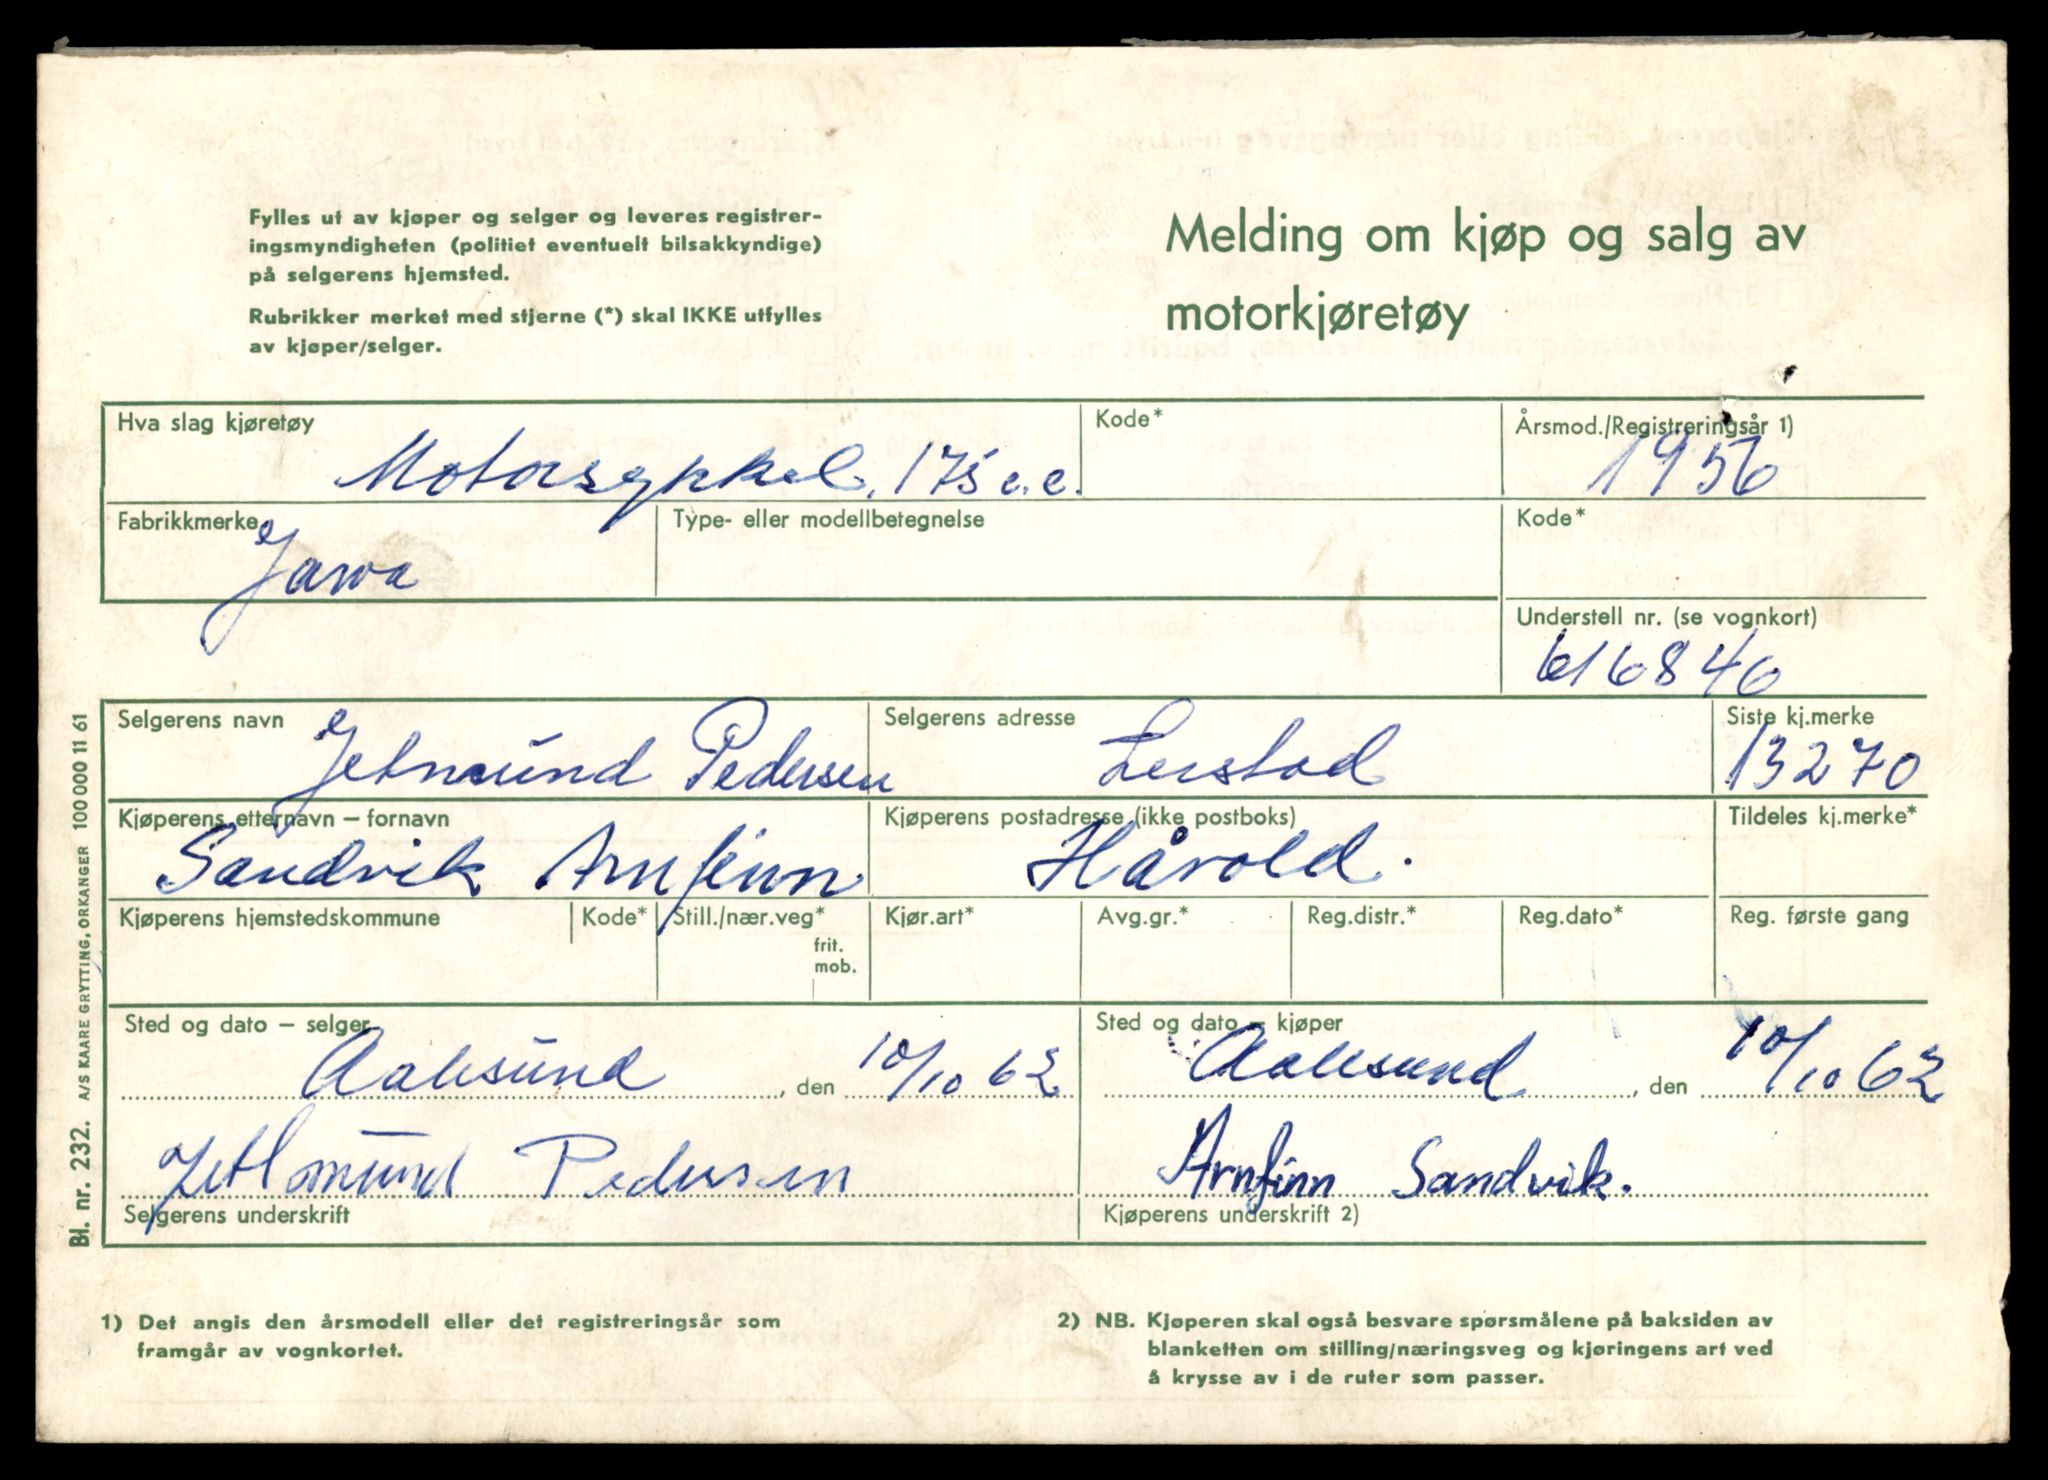 Fylles ut av kjøper og selger og leveres registrer-
ingsmyndigheten (politiet eventuelt bilsakkyndige)
på selgerens hjemsted.
Rubrikker merket med stjerne (*) skal IKKE utfylles
av kjøper/selger.
Melding om kjøp og salg av
motorkjøretøy
Hva slag kjøretøy
Motorsykkel. 175 c.c.
Kode*
Årsmod./Registreringsår 1)
1956
Fabrikkmerke
Jawa
Type- eller modellbetegnelse
Kode*
Understell nr. (se vognkort)
616846
Selgerens navn
Jetmund Pedersen
Selgerens adresse
Lerstad
Siste kj.merke
13270
Kjøperens etternavn – fornavn
Sandvik Arnfinn
Kjøperens postadresse (ikke postboks)
Håvold.
Tildeles kj.merke*
Kjøperens hjemstedskommune
Kode*
Still./nær.veg*
frit.
mob.
Kjør.art*
Avg.gr.*
Reg.distr.*
Reg.dato*
Reg. første gang
Sted og dato – selger
Aalesund, den 10/10 62
Sted og dato – kjøper
Aalesund, den 10/10 62
Pedersen
Selgerens underskrift
Arnfinn Sandvik.
Kjøperens underskrift 2)
1) Det angis den årsmodell eller det registreringsår som
framgår av vognkortet.
2) NB. Kjøperen skal også besvare spørsmålene på baksiden av
blanketten om stilling/næringsveg og kjøringens art ved
å krysse av i de ruter som passer.
Bl. nr. 232. A/S KAARE GRYTTING, ORKANGER 100 000 11 61